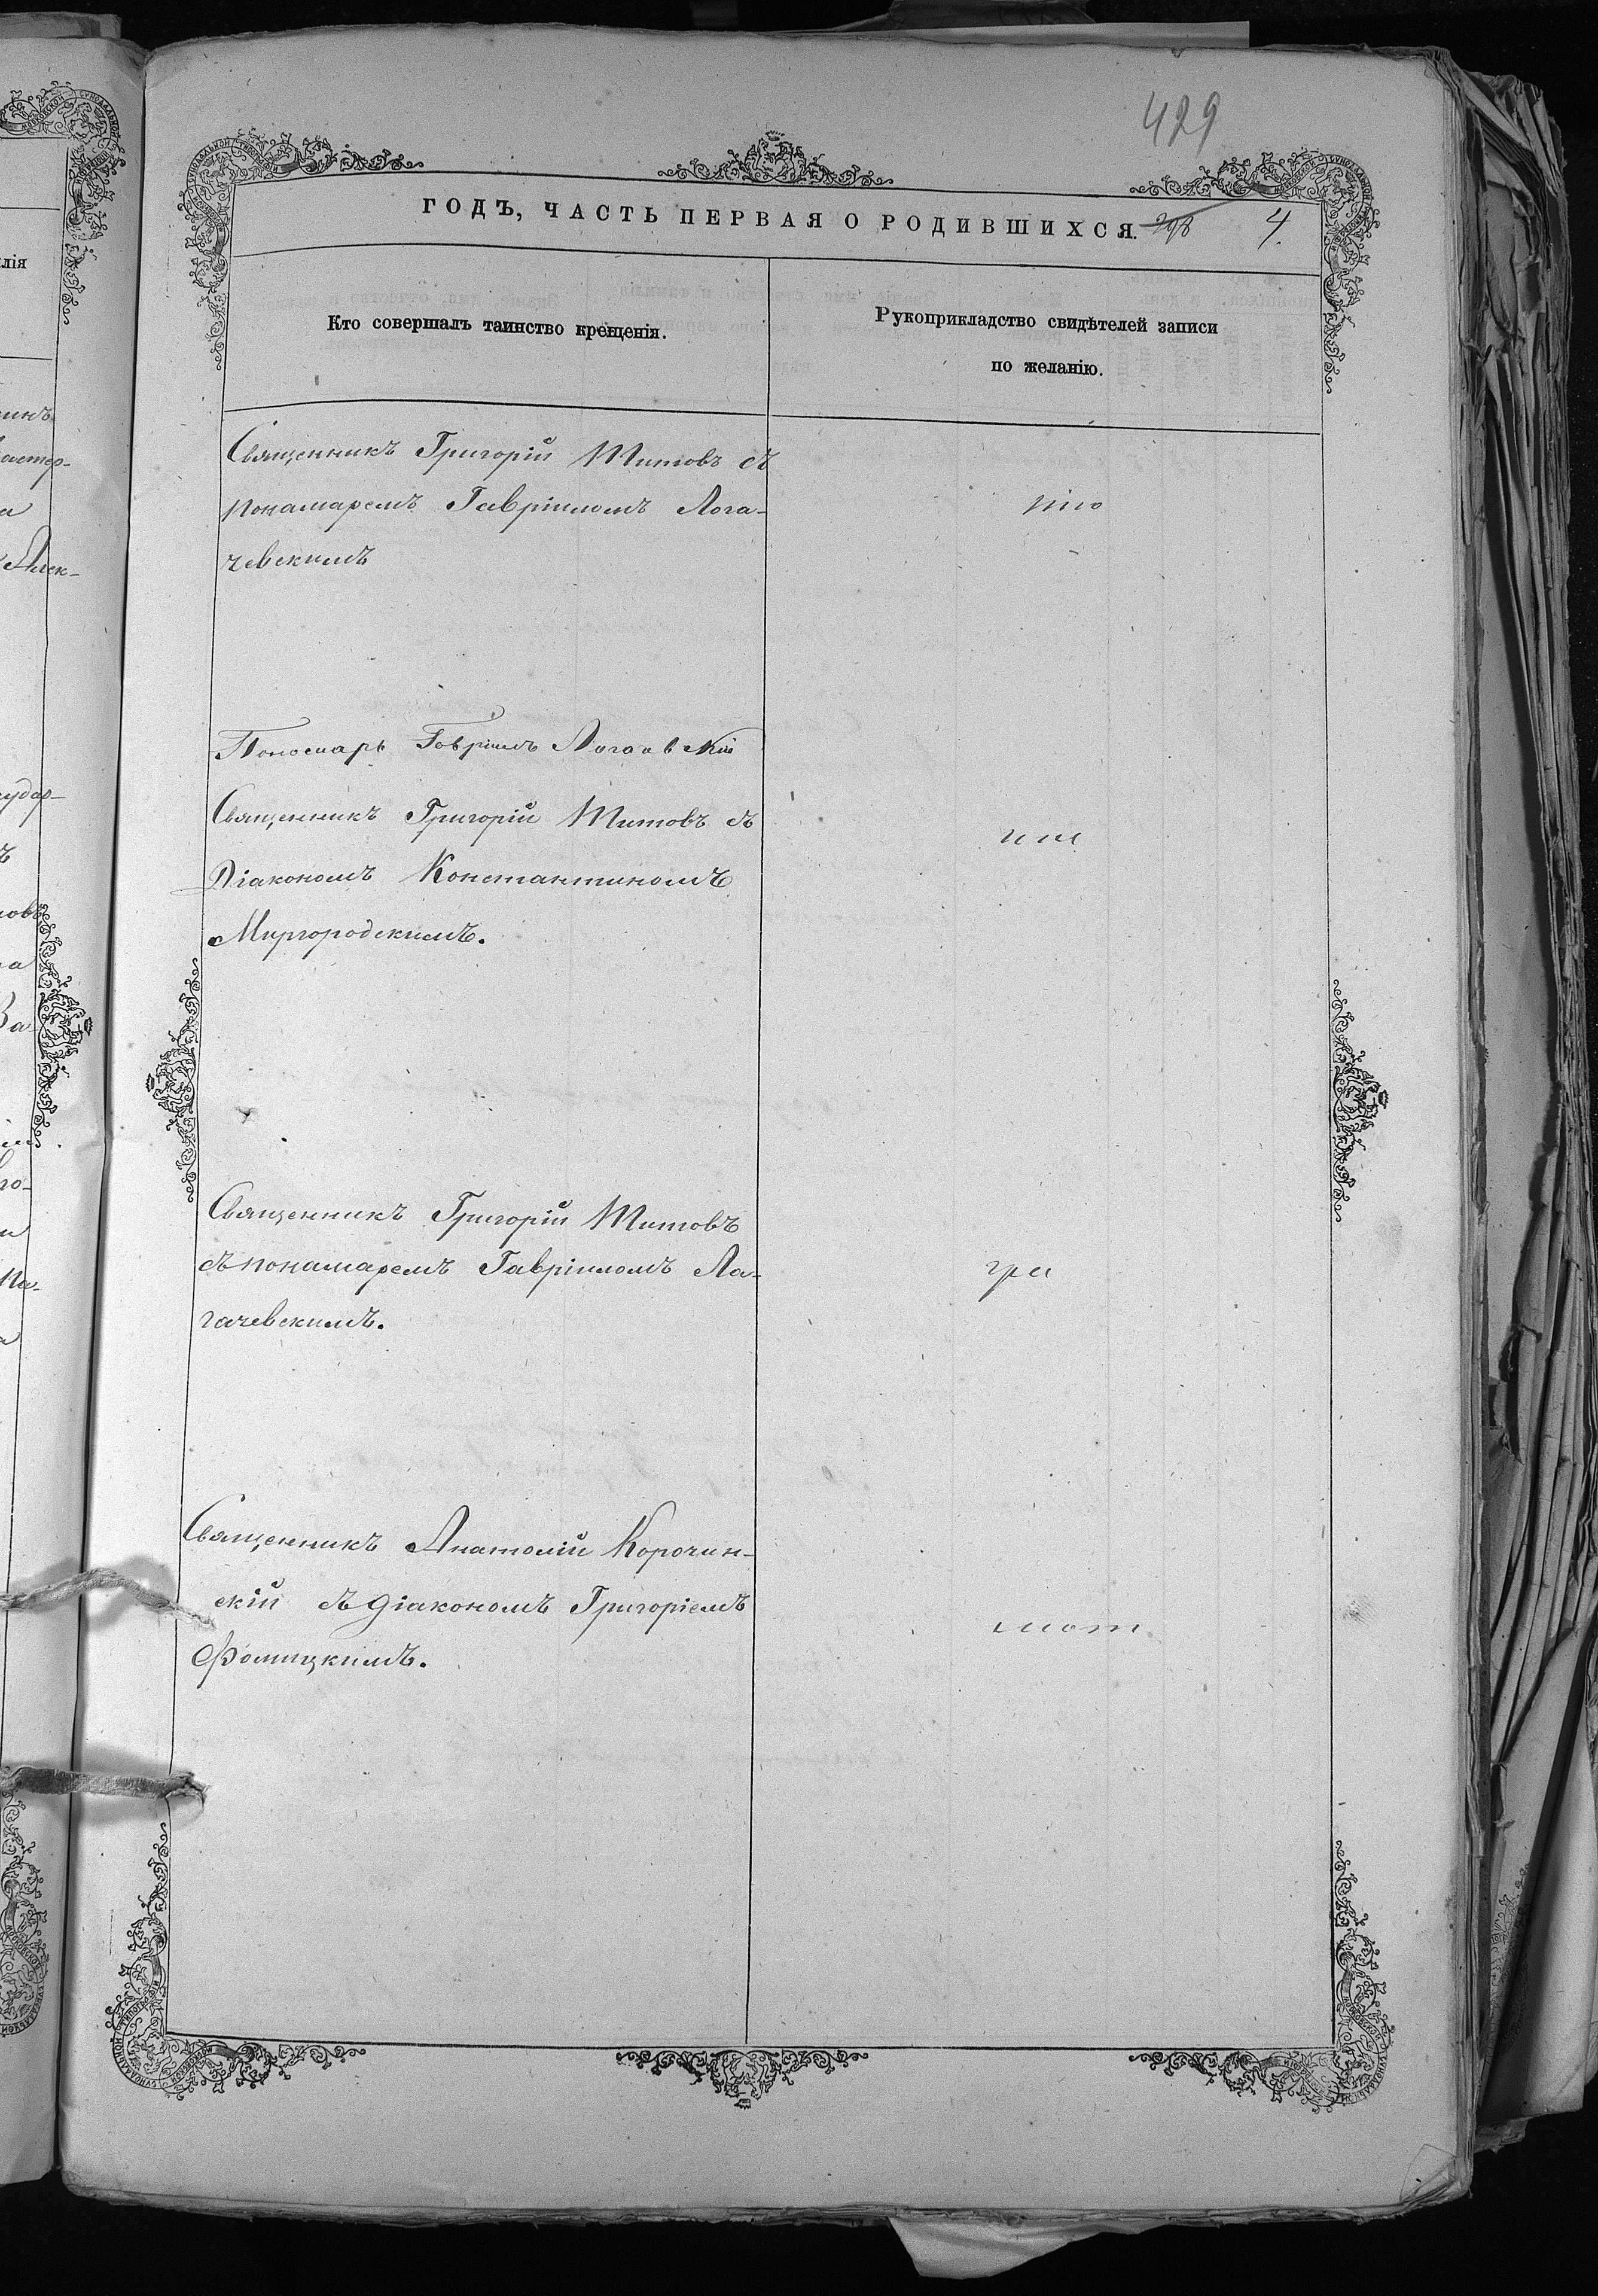 429
ГОДЪ, ЧАСТЬ ПЕРВАЯ О РОДИВШИХСЯ. 4.
Кто совершалъ таинство крещенія.
Рукоприкладство свидѣтелей записи
по желанію.
Священникъ Григорій Титовъ съ
понамаремъ Гавріиломъ Лога-
чевскимъ
Пономарь Гавріилъ
Священникъ Григорій Титовъ съ
Діакономъ Константиномъ
Миргородскимъ.
Священникъ Григорій Титовъ
съ понамаремъ Гавріиломъ Ла-
гачевскимъ.
гра
Священникъ Анатолій Корочин-
скій съ діакономъ Григоріемъ
Фомицкимъ.
мот